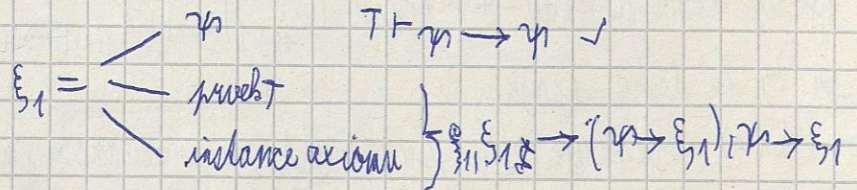 ψ T ⊢ ψ → ψ ✓
ξ1 = prvek T
instance axiomu } ξ1, ξ1 → (ψ → ξ1), ψ → ξ1